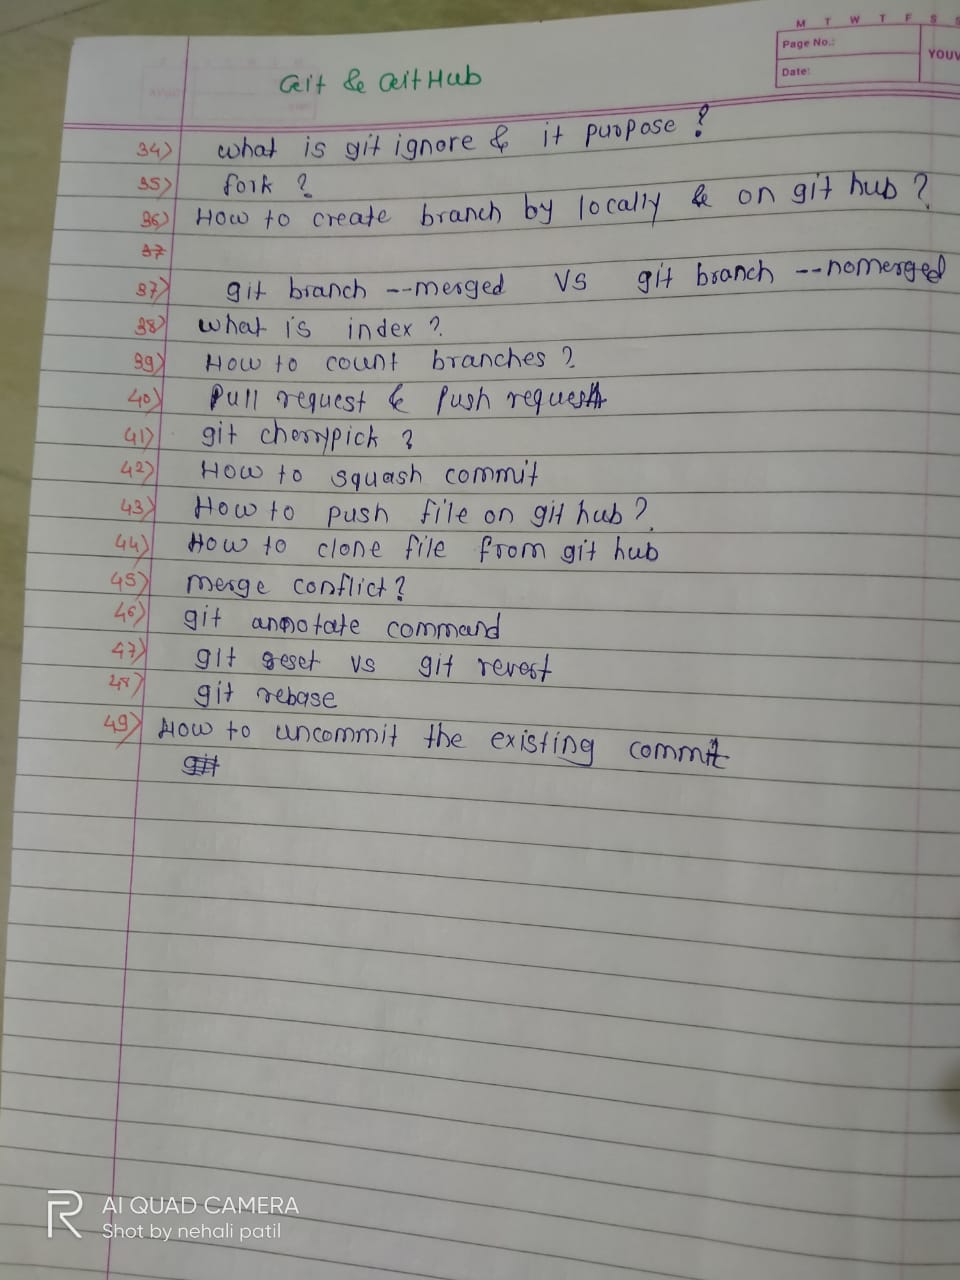 M T W T F S S
Page No.:
YOUV
Date:
Git & GitHub
34) what is git ignore & it purpose ?
35) fork ?
36) How to create branch by locally & on git hub ?
37
37) git branch --merged VS git branch --nomerged
38) what is index ?
39) How to count branches ?
40) Pull request & Push request
41) git cherrypick ?
42) How to squash commit
43) How to push file on git hub ?
44) How to clone file from git hub
45) merge conflict ?
46) git annotate command
47) git reset vs git revert
48) git rebase
49) How to uncommit the existing commit
git
AI QUAD CAMERA
Shot by nehali patil